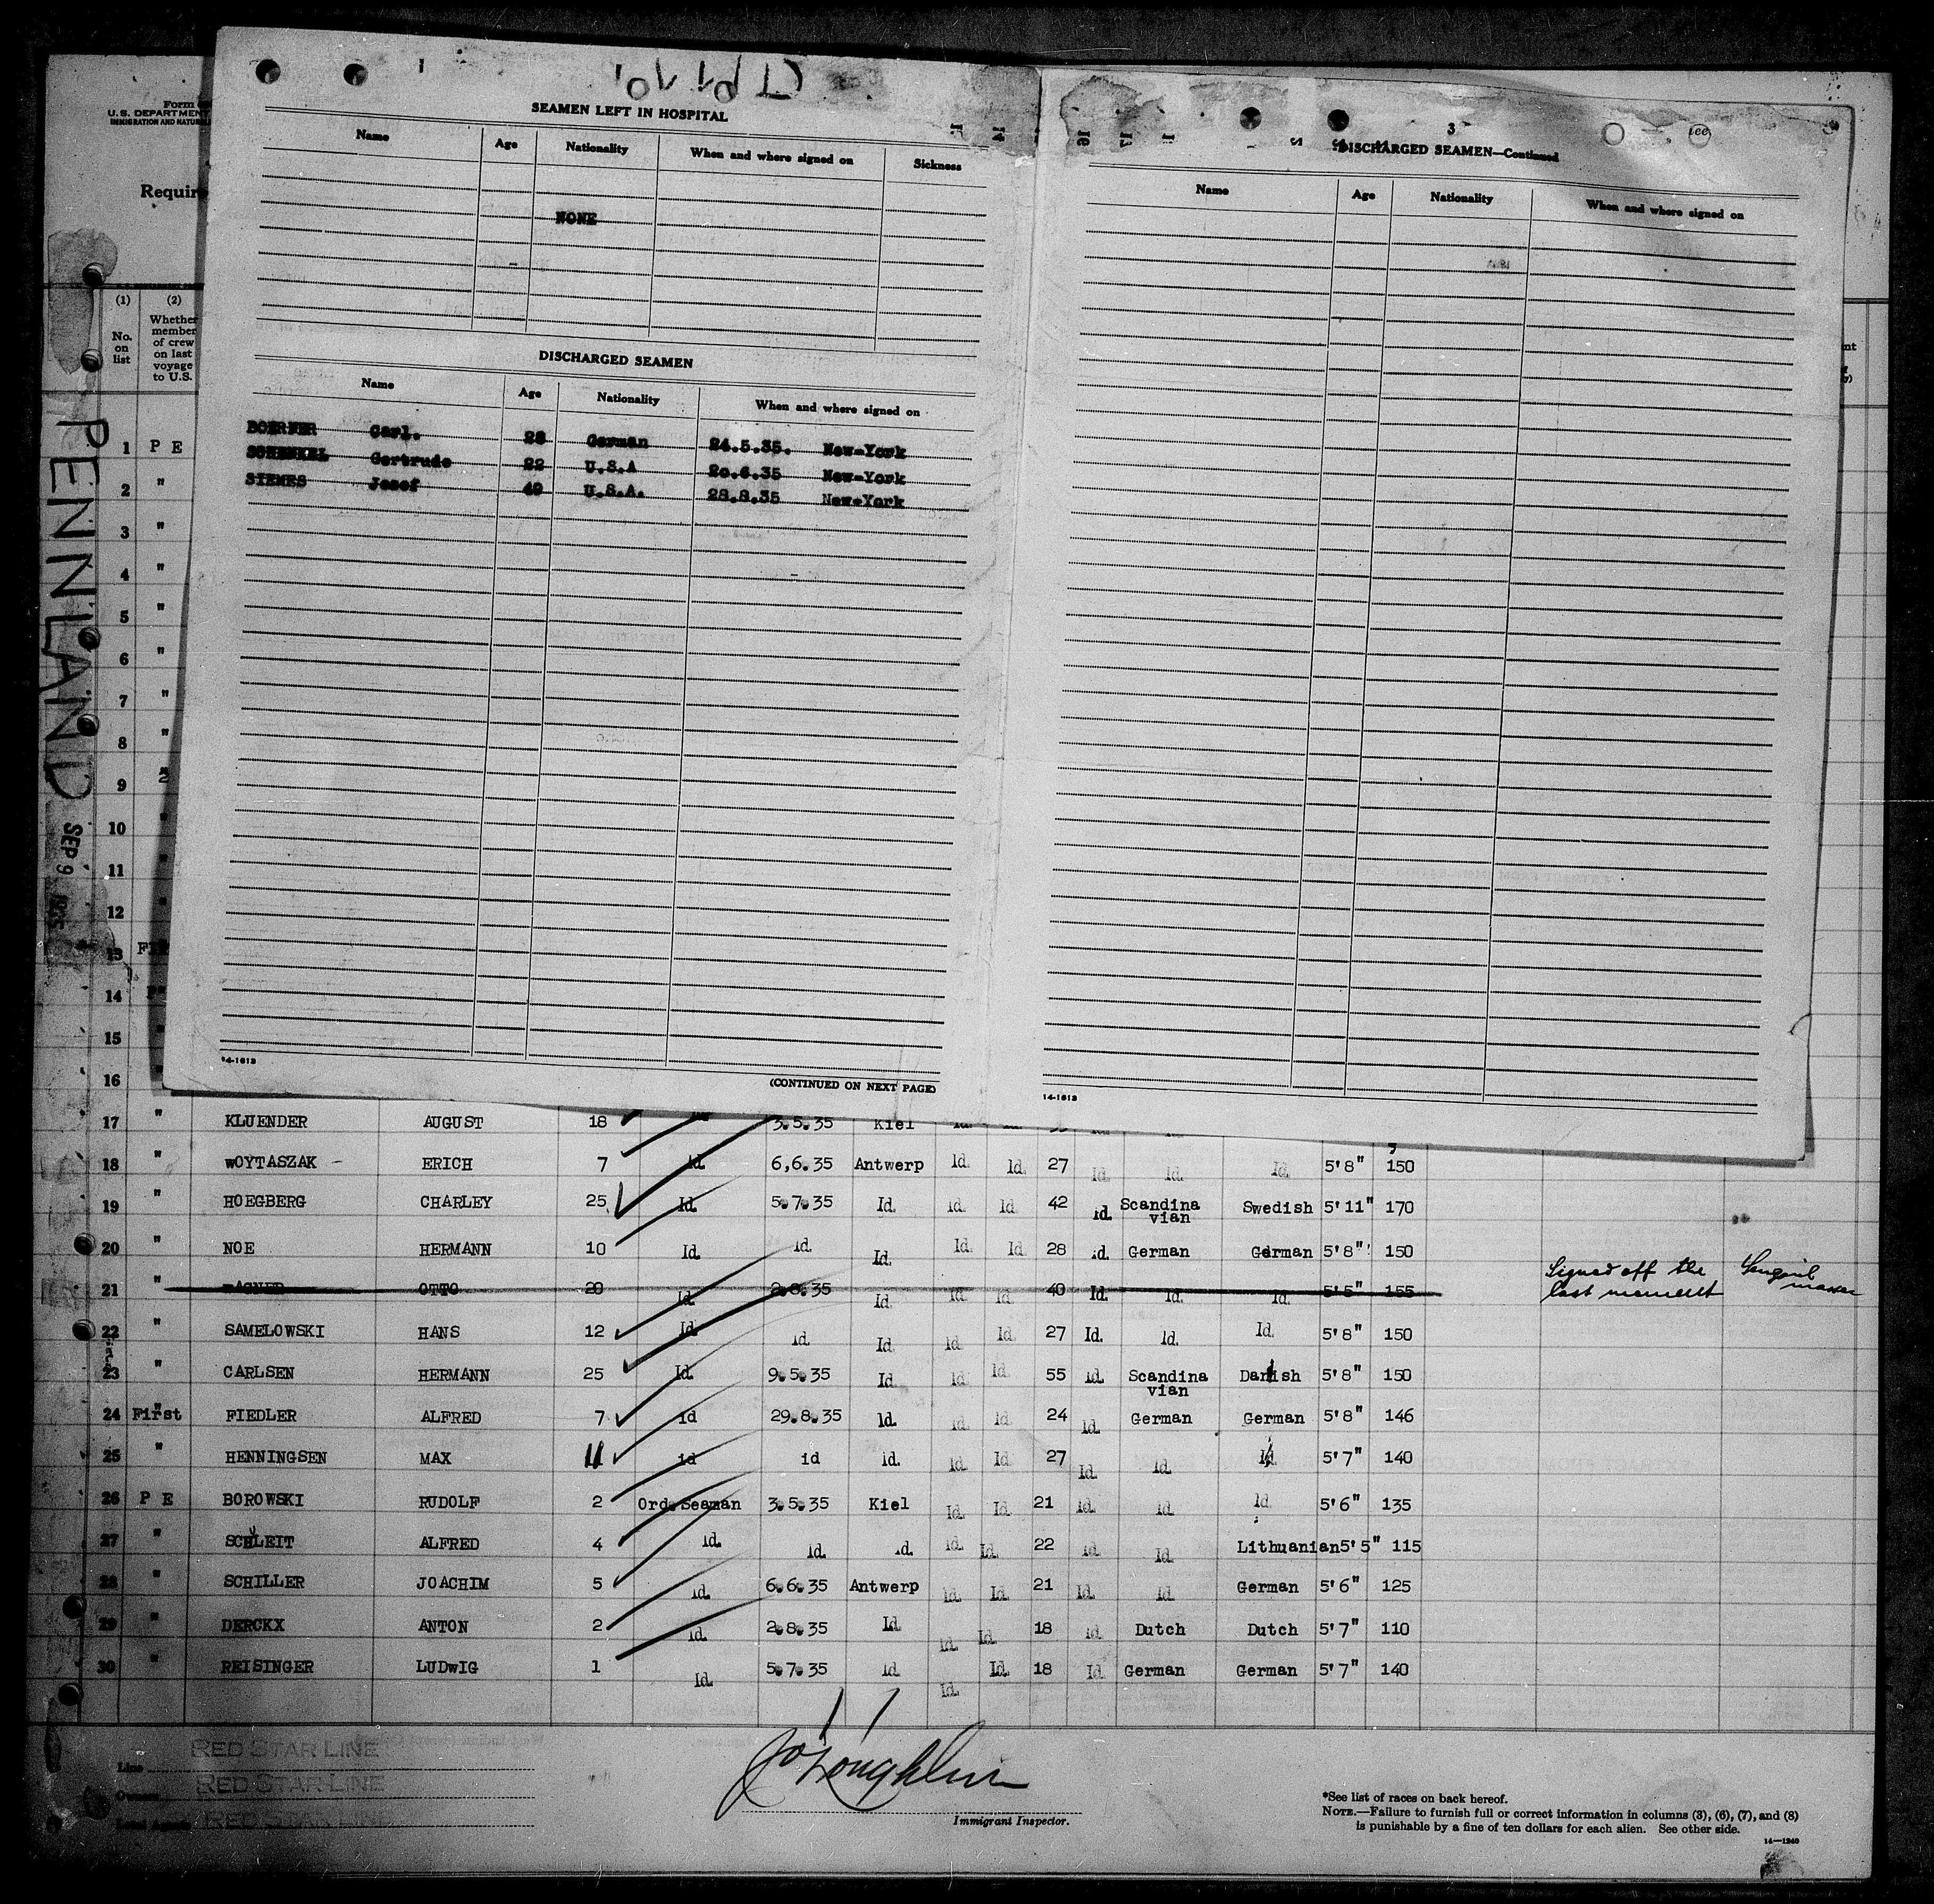 SEAMEN LEFT IN HOSPITAL
Name Age Nationality When and where signed on Sickness
NONE
DISCHARGED SEAMEN
Name Age Nationality When and where signed on
BOERNER Carl. 28 German 24.5.35. New-York
SCHENKEL Gertrude 22 U.S.A 20.6.35 New-York
SIEMES Josef 49 U.S.A. 28.8.35 New-York
14-1613
(CONTINUED ON NEXT PAGE)
3
DISCHARGED SEAMEN—Continued
Name Age Nationality When and where signed on
14-1613
Form
U.S. DEPARTMENT
IMMIGRATION AND
Require
(1) (2)
No. on list
Whether member of crew on last voyage to U.S.
PENNLAND SEP 9 1935
1 P E
2 "
3 "
4 "
5 "
6 "
7 "
8 "
9 "
10 "
11 "
12 "
13
14
15
16
17 " KLUENDER AUGUST 18 3.5.35 Kiel
18 " WOYTASZAK ERICH 7 Id. 6,6.35 Antwerp Id. Id. 27 Id. Id. Id. 5'8" 150
19 " HOEGBERG CHARLEY 25 Id. 5.7.35 Id. Id. Id. 42 Id. Scandina vian Swedish 5'11" 170
20 " NOE HERMANN 10 Id. Id. Id. Id. Id. 28 id. German German 5'8" 150
21 " WAGNER OTTO 20 Id. 2.8.35 Id. Id. Id. 40 Id. Id. Id. 5'5" 155 Signed off the last moment
22 " SAMELOWSKI HANS 12 Id. Id. Id. Id. Id. 27 Id. Id. Id. 5'8" 150
23 " CARLSEN HERMANN 25 Id. 9.5.35 Id. Id. Id. 55 id. Scandina vian Danish 5'8" 150
24 First FIEDLER ALFRED 7 id 29.8.35 Id. Id. Id. 24 Id. German German 5'8" 146
25 " HENNINGSEN MAX 11 id id id. Id. Id. 27 Id. Id. Id. 5'7" 140
26 P E BOROWSKI RUDOLF 2 Ord. Seaman 3.5.35 Kiel Id. Id. 21 Id. Id. Id. 5'6" 135
27 " SCHLEIT ALFRED 4 Id. Id. Id. Id. Id. 22 Id. Id. Lithuanian 5'5" 115
28 " SCHILLER JOACHIM 5 Id. 6.6.35 Antwerp Id. Id. 21 Id. Id. German 5'6" 125
29 " DERCKX ANTON 2 Id. 2.8.35 Id. Id. Id. 18 Id. Dutch Dutch 5'7" 110
30 " REISINGER LUDWIG 1 Id. 5.7.35 Id. Id. Id. 18 Id. German German 5'7" 140
Line RED STAR LINE
Owners RED STAR LINE
Local Agents RED STAR LINE
JO'Loughlin
Immigrant Inspector.
*See list of races on back hereof.
NOTE.—Failure to furnish full or correct information in columns (3), (6), (7), and (8)
is punishable by a fine of ten dollars for each alien. See other side.
14—1240